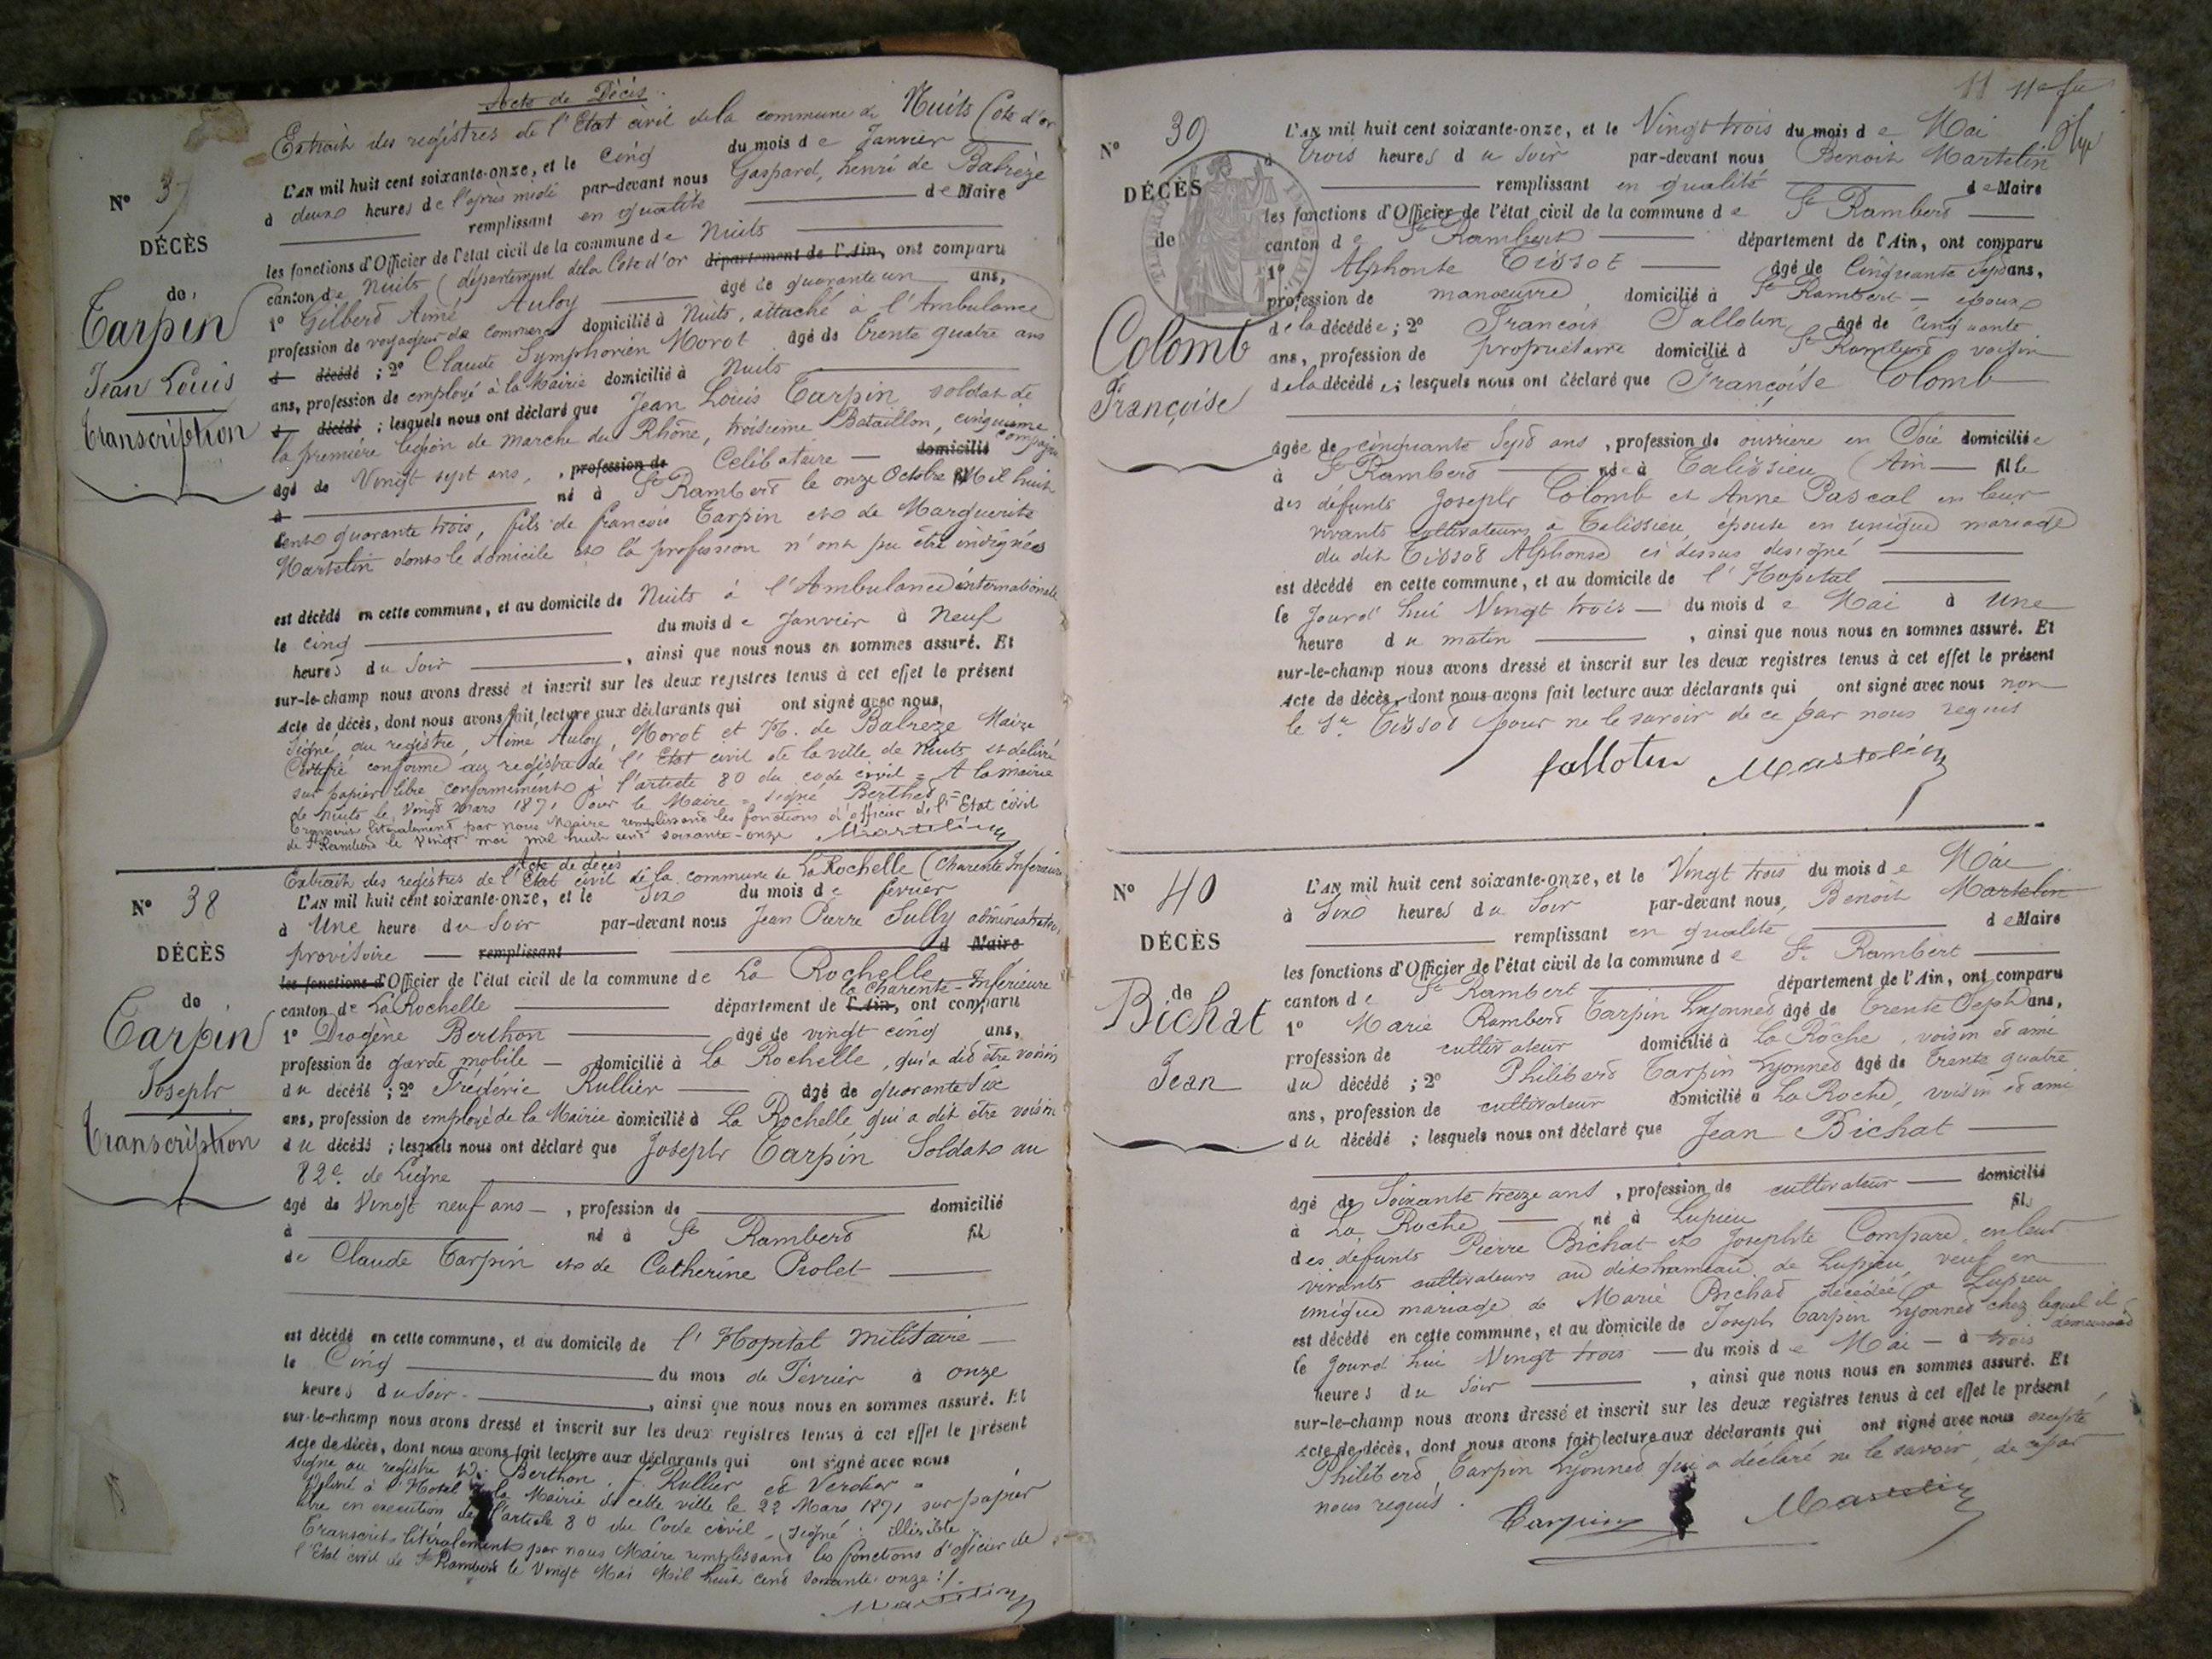 Acte de Décès.
Extrait des registres de l'Etat civil de la commune de Nuits (Côte d'or
N° 37
DÉCÈS
de
Tarpin
Jean Louis
transcription
L'AN mil huit cent soixante-onze, et le cinq du mois de Janvier
à deux heures de l'après midi par-devant nous Gaspard, henri de Balrèze
remplissant en qualité de Maire
les fonctions d'Officier de l'état civil de la commune de Nuits
canton de Nuits (département de la Côte d'or département de l'Ain, ont comparu
1° Gilbert Aimé Auloy âgé de quarante un ans,
profession de voyageur de commerce domicilié à Nuits, attaché à l'Ambulance
d décédé ; 2° Claude Symphorien Morot âgé de trente quatre ans
ans, profession de employé à la Mairie domicilié à Nuits
d décédé ; lesquels nous ont déclaré que Jean Louis Tarpin soldat de
la première légion de marche du Rhône, troisième Bataillon, cinquième compagnie
âgé de Vingt sept ans, profession de Célibataire domicilié
à né à St Rambert le onze Octobre Mil huit
cent quarante trois, fils de françois Tarpin et de Marguerite
Martelin dont le domicile et la profession n'ont pu être indignés
est décédé en cette commune, et au domicile de Nuits à l'Ambulance internationale
le cinq du mois de Janvier à Neuf
heures du soir , ainsi que nous nous en sommes assuré. Et
sur-le-champ nous avons dressé et inscrit sur les deux registres tenus à cet effet le présent
Acte de décès, dont nous avons fait lecture aux déclarants qui ont signé avec nous.
Signé au registre, Aimé Auloy, Morot et H. de Balreze Maire
Certifié conforme au registre de l'Etat civil de la ville de Nuits et délivré
sur papier libre conformément à l'article 80 du code civil = A la mairie
de Nuits le Vingt mars 1871 Pour le Maire = signé Berthet =
Transcrit litéralement par nous Maire remplissant les fonctions d'officier de l'Etat civil
de St Rambert le Vingt mai mil huit cent soixante-onze. Martelin
Acte de décès
Extrait des registres de l'Etat civil de la commune de La Rochelle (Charente Inférieure
N° 38
DÉCÈS
de
Tarpin
Joseph
transcription
L'AN mil huit cent soixante-onze, et le Six du mois de février
à Une heure du Soir par-devant nous Jean Pierre Sully administrateur
provisoire remplissant d Maire
les fonctions d'Officier de l'état civil de la commune de La Rochelle
canton de La Rochelle département de l'Ain, la Charente-Inférieure ont comparu
1° Diogène Berthon âgé de vingt cinq ans,
profession de garde mobile domicilié à La Rochelle, qui a dit être voisin
du décédé ; 2° Frédéric Rullier âgé de quarante six
ans, profession de employé de la Mairie domicilié à La Rochelle qui a dit être voisin
du décédé ; lesquels nous ont déclaré que Joseph Tarpin Soldat au
82e. de Ligne
âgé de Vingt neuf ans, profession de domicilié
à né à St Rambert fils
de Claude Tarpin et de Catherine Prolet
est décédé en cette commune, et au domicile de l'Hopital Militaire
le Cinq du mois de Février à onze
heures du soir , ainsi que nous nous en sommes assuré. Et
sur-le-champ nous avons dressé et inscrit sur les deux registres tenus à cet effet le présent
Acte de décès, dont nous avons fait lecture aux déclarants qui ont signé avec nous
Signé au registre Berthon, f. Rullier et
Délivré à l'Hotel de la Mairie de cette ville le 22 Mars 1871 sur papier
libre en execution de l'article 80 du Code civil - signé : illisible
Transcrit litéralement par nous Maire remplissant les fonctions d'officier de
l'Etat civil de St Rambert le Vingt Mai Mil huit cent soixante onze :/.
Martelin
11 11e fe
N° 39
DÉCÈS
de
Colomb
Françoise
L'AN mil huit cent soixante-onze, et le Vingt trois du mois de Mai
à trois heures du soir par-devant nous Benoit Martelin
remplissant en qualité de Maire
les fonctions d'Officier de l'état civil de la commune de St Rambert
canton de St Rambert département de l'Ain, ont comparu
1° Alphonse Tissot âgé de Cinquante Sept ans,
profession de manoeuvre, domicilié à St Rambert - époux
de la décédée ; 2° François Fallotin âgé de Cinquante
ans, profession de propriétaire domicilié à St Rambert voisin
de la décédée ; lesquels nous ont déclaré que Françoise Colomb
âgée de cinquante Sept ans, profession de ouvriere en Soie domiciliée
à St Rambert née à Talissieu (Ain fille
des défunts Joseph Colomb et Anne Pascal en leur
vivants cultivateurs à Talissieu, épouse en unique mariage
du dit Tissot Alphonse ci dessus designé
est décédé en cette commune, et au domicile de l'Hopital
le Jourd'hui Vingt trois du mois de Mai à Une
heure du matin , ainsi que nous nous en sommes assuré. Et
sur-le-champ nous avons dressé et inscrit sur les deux registres tenus à cet effet le présent
Acte de décès, dont nous avons fait lecture aux déclarants qui ont signé avec nous non
le Sr. Tissot pour ne le savoir de ce par nous requis
fallotin Martelin
N° 40
DÉCÈS
de
Bichat
Jean
L'AN mil huit cent soixante-onze, et le Vingt trois du mois de Mai
à Six heures du Soir par-devant nous, Benoit Martelin
remplissant en qualité de Maire
les fonctions d'Officier de l'état civil de la commune de St. Rambert
canton de St Rambert département de l'Ain, ont comparu
1° Marie Rambert Tarpin Lyonnet âgé de trente Sept ans,
profession de cultivateur domicilié à La Roche, voisin et ami
du décédé ; 2° Philibert Tarpin Lyonnet âgé de trente quatre
ans, profession de cultivateur domicilié à La Roche, voisin et ami
du décédé ; lesquels nous ont déclaré que Jean Bichat
âgé de Soixante treize ans, profession de cultivateur domicilié
à La Roche né à Lupieu fils
des défunts Pierre Bichat et Josephte Compare, en leur
vivants cultivateurs au dit hameau de Lupieu, veuf en
unique mariage de Marie Bichat décédée à Lupieu
est décédé en cette commune, et au domicile de Joseph Tarpin Lyonnet chez lequel il demeurait
le Jourd'hui Vingt trois du mois de Mai à trois
heures du Soir , ainsi que nous nous en sommes assuré. Et
sur-le-champ nous avons dressé et inscrit sur les deux registres tenus à cet effet le présent
Acte de décès, dont nous avons fait lecture aux déclarants qui ont signé avec nous excepté
Philibert Tarpin Lyonnet qui a déclaré ne le savoir, de ce par
nous requis.
Tarpin Martelin